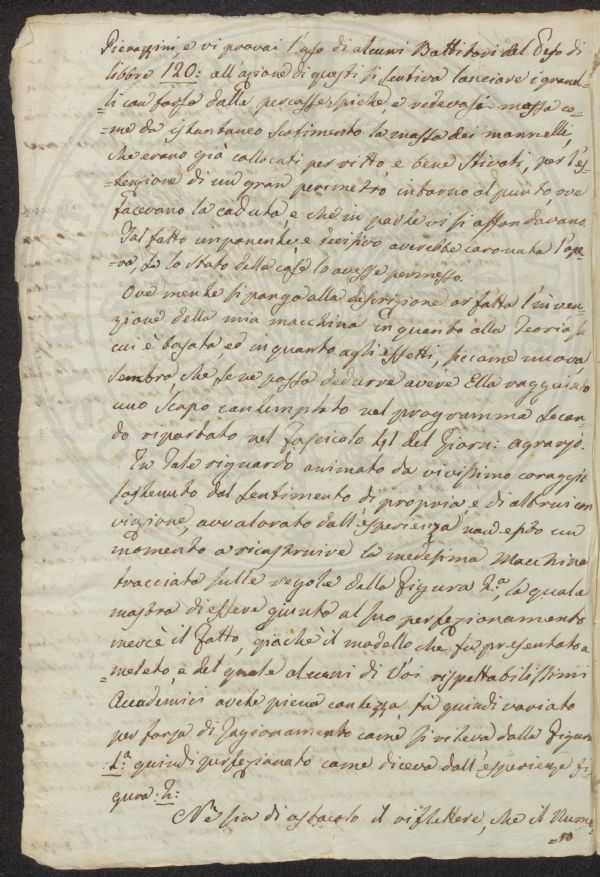 Pierazzini e vi provai l'uso di alcuni Battitori del Peso di
libbre 120: all'azione di questi si sentiva lanciare i granel=
=li con forza dalle percosse spiche e vedevasi mossa co=
=me da istantaneo scotimento la massa dei mannelli,
che erano già collocati per ritto, e bene stivati, per l'es=
=tenzione di un gran perimetro intorno al punto, ove
facevano la caduta, e che in parte vi si affondavano.
Tal fatto imponente, e decisivo averebbe coronata l'ope=
=ra, se lo stato delle cose lo avesse permesso.
Ove mente si ponga alla descrizione or fatta l'inven=
=zione della mia macchina in quanto alla Teoria su
cui è basata, ed in quanto agli effetti, siccome nuova,
sembra, che se ne possa dedurre avere Ella raggiunto
uno scopo contemplato nel programma secon=
do riportato nel fascicolo 41 del Giorn: agrario.
In tale riguardo animato da vivissimo coraggio
sostenuto dal sentimento di propria, e di altrui con
vinzione, avvalorato dall'esperienza non esito un
momento a ricostruire la medesima Macchina
tracciata sulle regole della Figura 2.ª, la quale
mostra di essere giunta al suo perfezionamento
mercè il fatto, giacchè il modello che fu presentato a
=meleto, e del quale alcuni di Voi rispettabilissimi
Accademici avete piena contezza, fù quindi variato
per forza di ragionamento come si rileva dalla Figura
1.ª quindi perfezionato come diceva dall'esperienza fi
gura: 2:
Nè sia di ostacolo il riflettere, che il Nume=
=ro